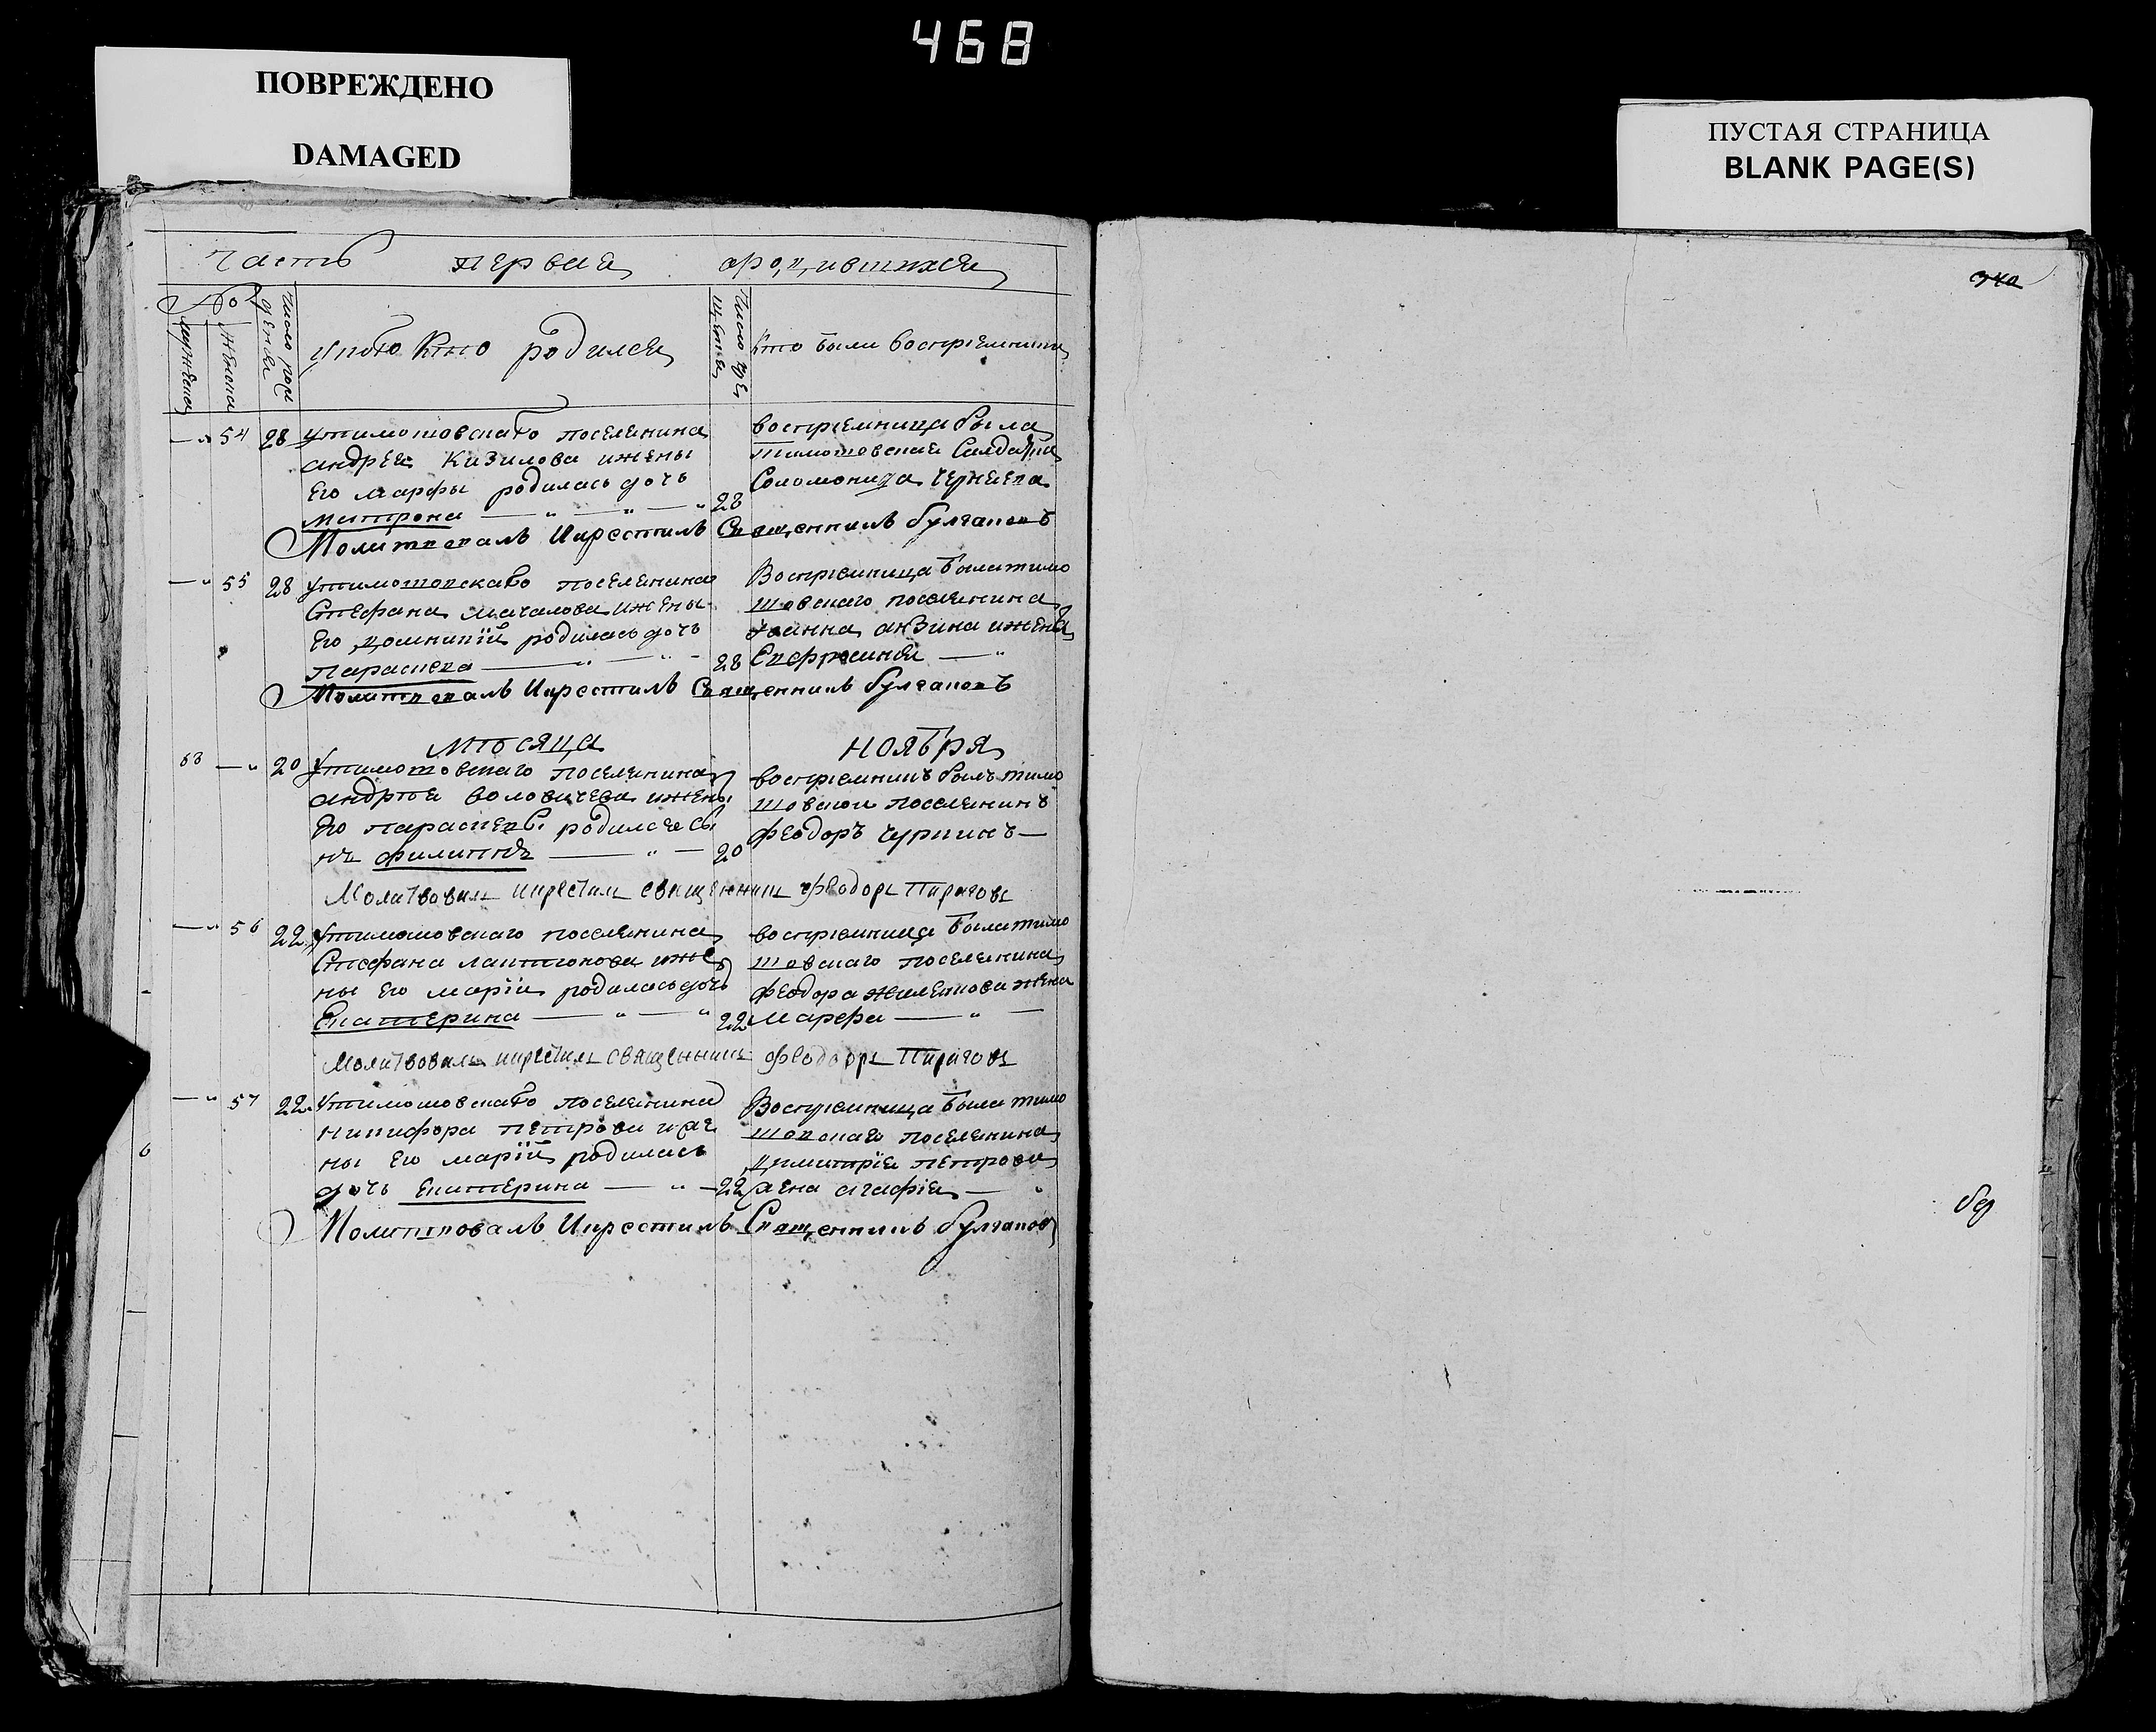 468
ПОВРЕЖДЕНО
DAMAGED
ПУСТАЯ СТРАНИЦА
BLANK PAGE(S)
Часть первая ородившихся
№
мужеска
женска
Число рож
денея
у ково Кто родился
Число кре
щенея
Кто были восприемники
— " 54 28 утимошовскаго поселенина
андрея Кизилова ижены
Его марфы родилась дочь
матрона — " — " — " 28
восприемница была
тимошовская Салдатка
Соломонида
Молитвовалъ Икрестилъ Священникъ булгаковъ
— " 55 28 утимошовскаго поселенина
Стефана мачалова ижены
Его домникїи родилась дочь
параскева — " — " — 28
Восприемница была тимо
шовскаго поселенина
Иоанна анзина ижена
Евфросиния — "
Молитвовалъ Икрестилъ Священникъ булгаковъ
мѣсяца ноября
63 — " 20 утимошовскаго поселенина
андрѣя воловичева ижены
Его параскевы родился сы
нъ филиппъ — " — 20
восприемникъ былъ тимо
шовской поселенинъ
феодоръ чуркинъ —
Молитвовалъ икрестилъ священникъ феодоръ Пираговъ
— " 56 22 утимошовскаго поселенина
Стефана лаптионова иже
ны Его марїи родилась дочь
Екатерина — " — " 22
восприемница была тимо
шовскаго поселенина
феодора жена
Марефа — " —
Молитвовалъ икрестилъ священникъ феодоръ Пираговъ
— " 57 22 утимошовскаго поселенина
никифора петрова иже
ны Его марїи родилась
дочь Екатерина — " — 22
Восприемница была тимо
шовскаго поселенина
димитрїя петрова
жена агафїя — "
Молитвовалъ Икрестилъ Священникъ булгаковъ